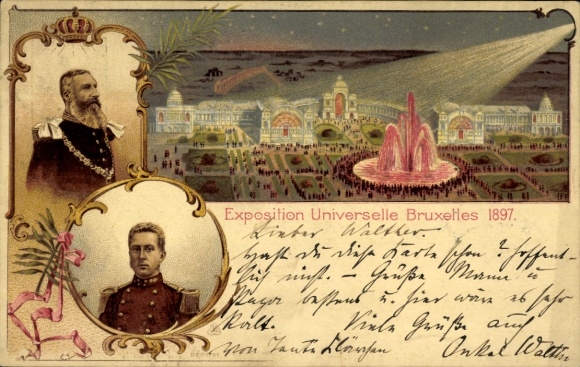 Exposition Universelle Bruxelles 1897.
Lieber Walther.
hast du diese Karte schon? hoffent-
lich nicht. – Grüße Mama u
Papa bestens u. hier wäre es sehr
kalt. Viele Grüße auch
von Tante Klärchen Onkel Walther